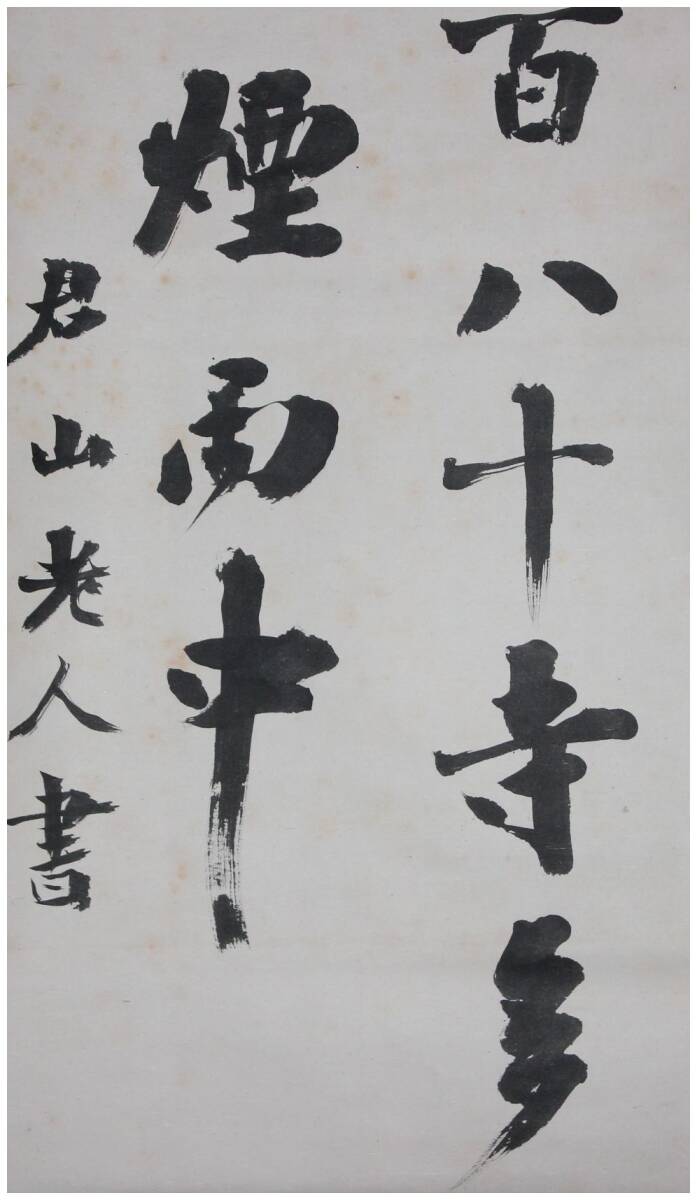 百八十寺多
煙雨中
君山老人書